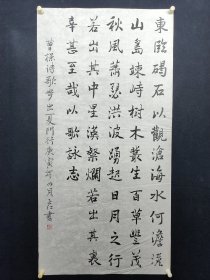 東臨碣石以觀滄海水何澹澹
山島竦峙樹木叢生百草豐茂
秋風蕭瑟洪波踴起日月之行
若出其中星漢粲爛若出其裏
幸甚至哉以歌詠志
曹操诗歌步出夏門行庚寅年四月書